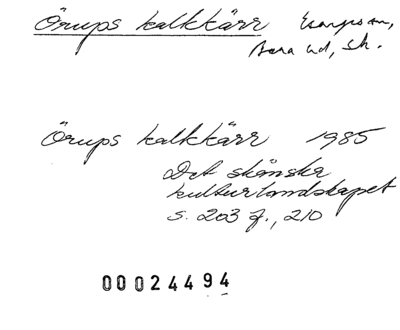 Örups kalkkärr Esarpssn,
Bara hd, Sk.
Örups kalkkärr 1985
Det skånska
kulturlandskapet
s. 203 f., 210
00024494